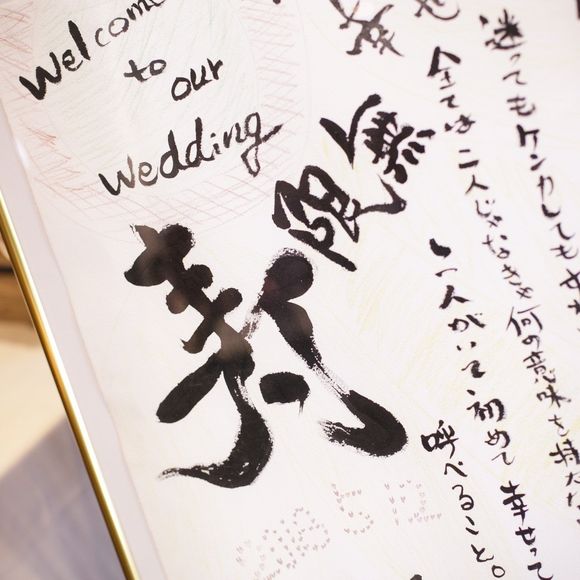 Welcome
to our
Wedding
寿
無限
迷ってもケンカしても
全ては二人じゃなきゃ何の意味を持たない
二人がいて初めて幸せって
呼べること。